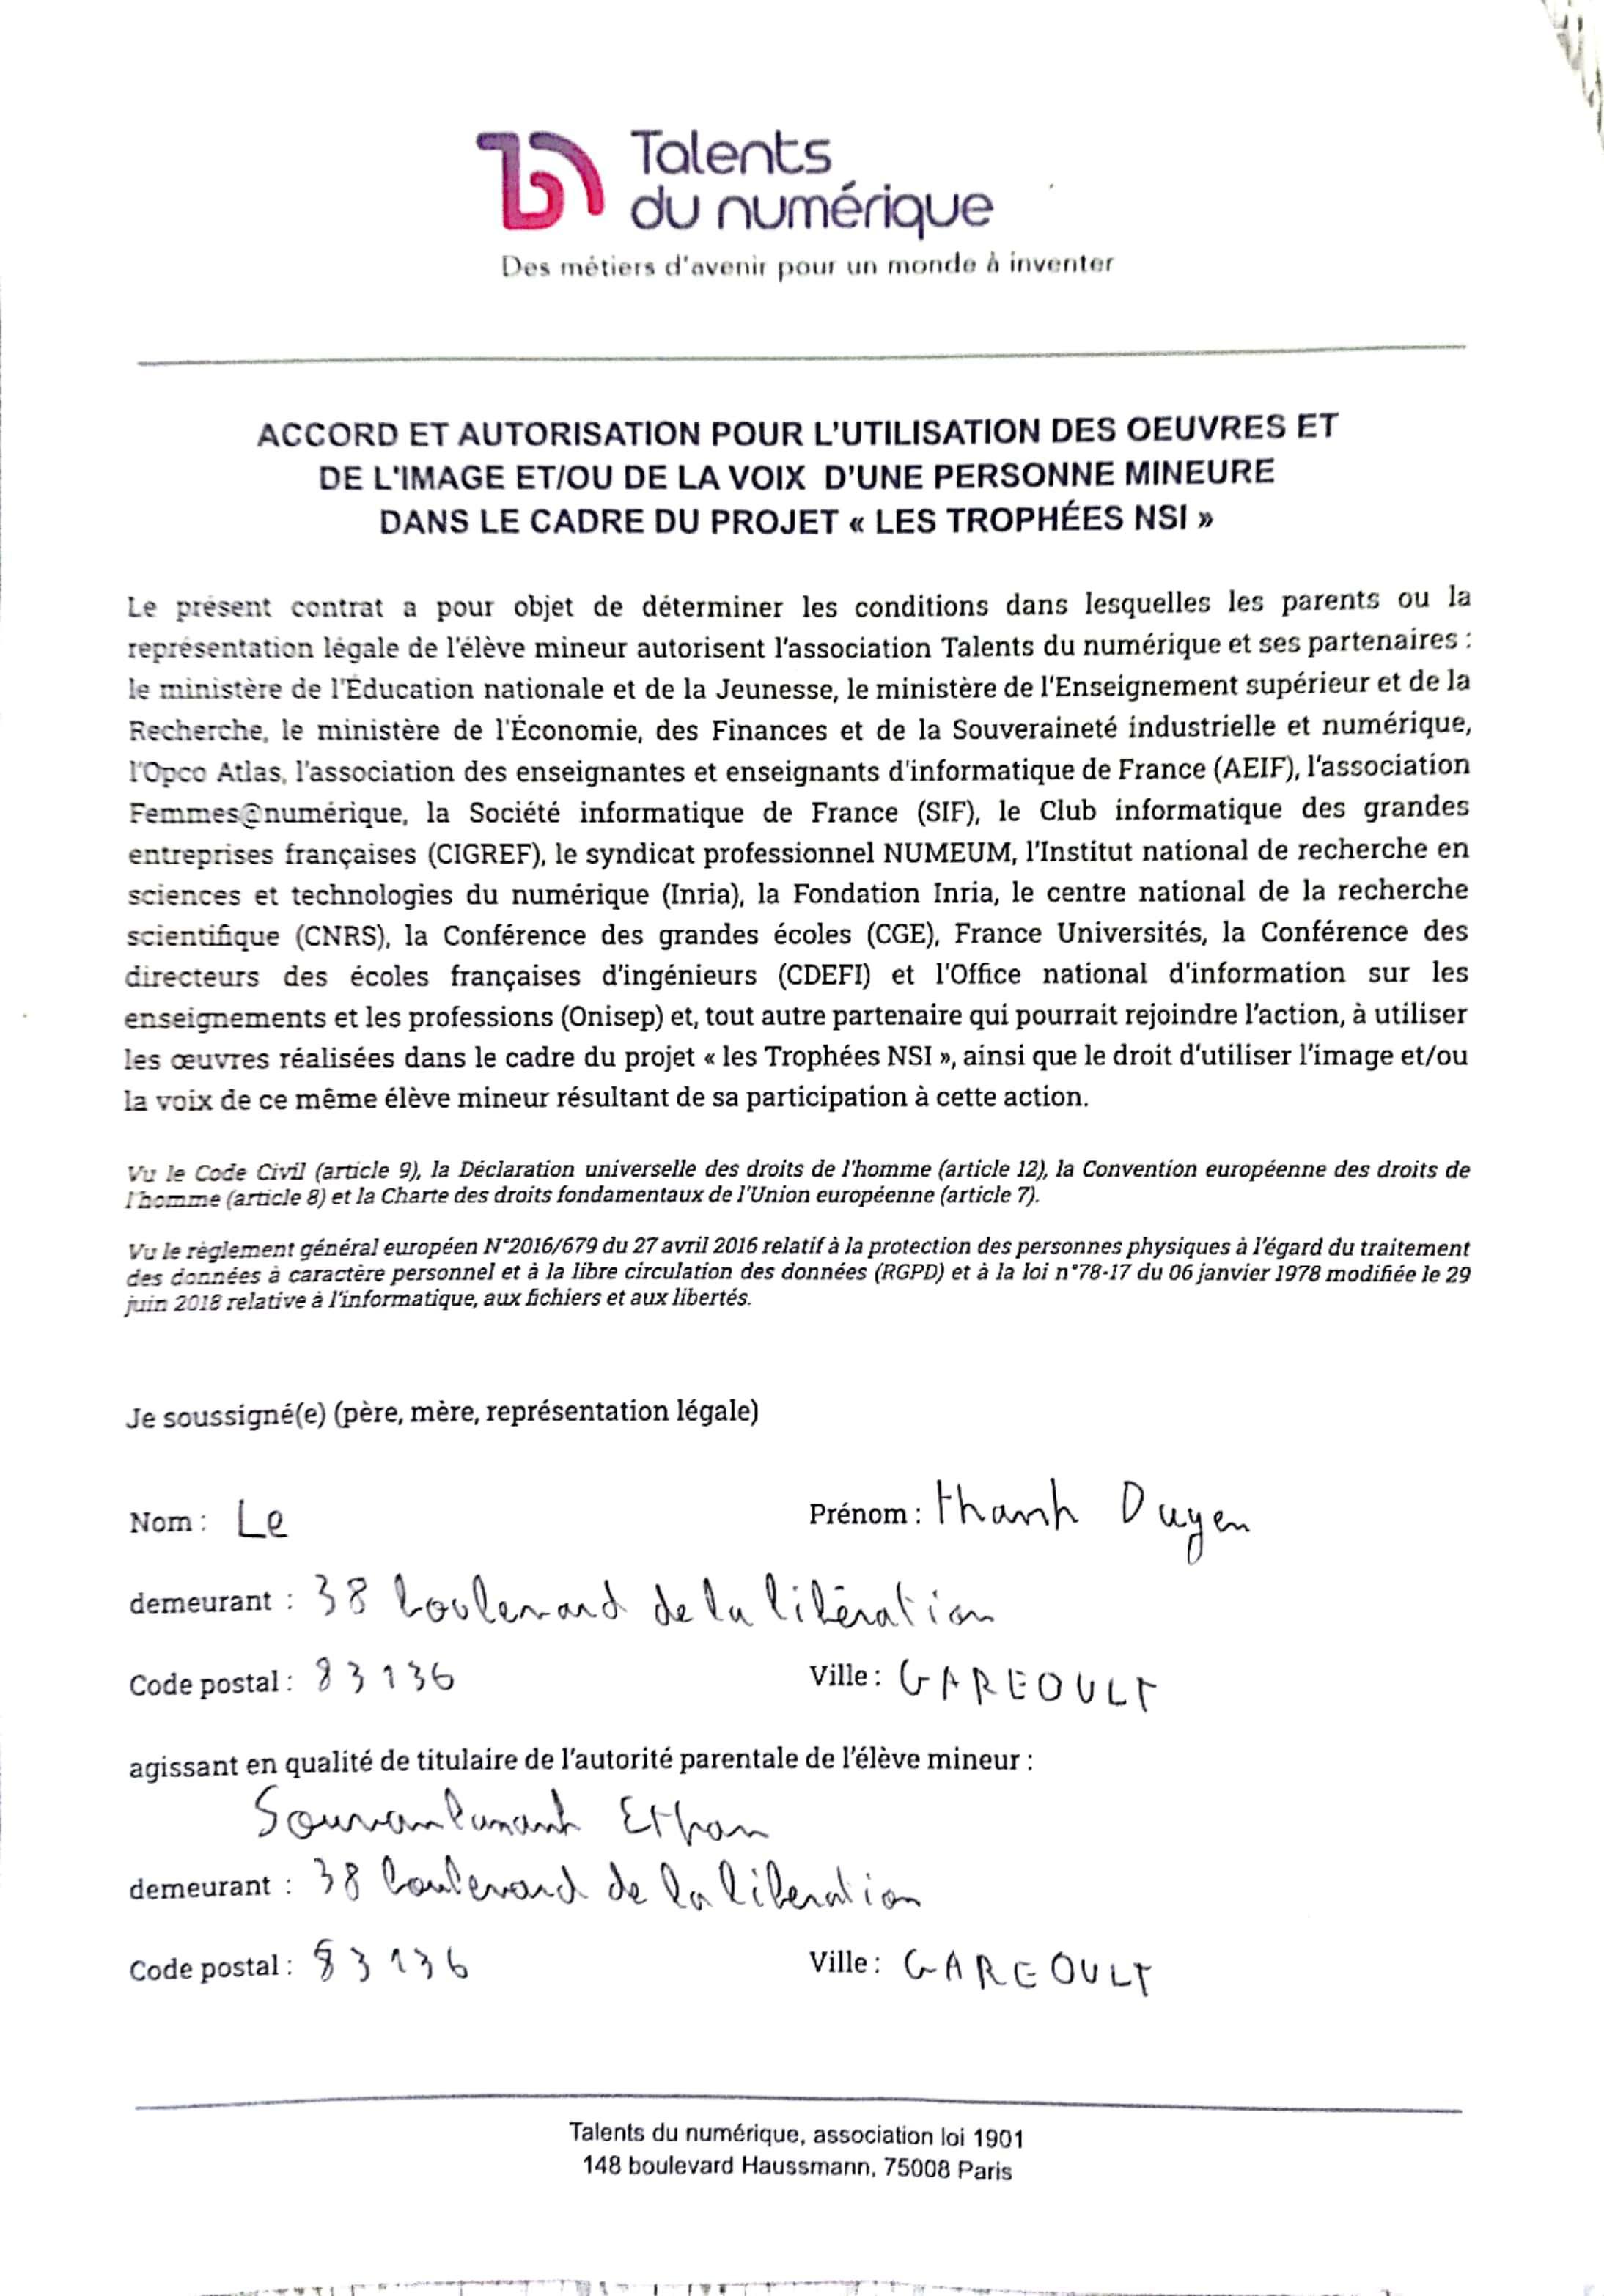 Talents
du numérique
Des métiers d'avenir pour un monde à inventer
ACCORD ET AUTORISATION POUR L'UTILISATION DES OEUVRES ET
DE L'IMAGE ET/OU DE LA VOIX D'UNE PERSONNE MINEURE
DANS LE CADRE DU PROJET « LES TROPHÉES NSI »
Le présent contrat a pour objet de déterminer les conditions dans lesquelles les parents ou la
représentation légale de l'élève mineur autorisent l'association Talents du numérique et ses partenaires :
le ministère de l'Éducation nationale et de la Jeunesse, le ministère de l'Enseignement supérieur et de la
Recherche, le ministère de l'Économie, des Finances et de la Souveraineté industrielle et numérique,
l'Opco Atlas, l'association des enseignantes et enseignants d'informatique de France (AEIF), l'association
Femmes@numérique, la Société informatique de France (SIF), le Club informatique des grandes
entreprises françaises (CIGREF), le syndicat professionnel NUMEUM, l'Institut national de recherche en
sciences et technologies du numérique (Inria), la Fondation Inria, le centre national de la recherche
scientifique (CNRS), la Conférence des grandes écoles (CGE), France Universités, la Conférence des
directeurs des écoles françaises d'ingénieurs (CDEFI) et l'Office national d'information sur les
enseignements et les professions (Onisep) et, tout autre partenaire qui pourrait rejoindre l'action, à utiliser
les œuvres réalisées dans le cadre du projet « les Trophées NSI », ainsi que le droit d'utiliser l'image et/ou
la voix de ce même élève mineur résultant de sa participation à cette action.
Vu le Code Civil (article 9), la Déclaration universelle des droits de l'homme (article 12), la Convention européenne des droits de
l'homme (article 8) et la Charte des droits fondamentaux de l'Union européenne (article 7).
Vu le règlement général européen N°2016/679 du 27 avril 2016 relatif à la protection des personnes physiques à l'égard du traitement
des données à caractère personnel et à la libre circulation des données (RGPD) et à la loi n°78-17 du 06 janvier 1978 modifiée le 29
juin 2018 relative à l'informatique, aux fichiers et aux libertés.
Je soussigné(e) (père, mère, représentation légale)
Nom : Le Prénom : thanh Duyen
demeurant : 38 boulevard de la libération
Code postal : 83136 Ville : GAREOULT
agissant en qualité de titulaire de l'autorité parentale de l'élève mineur :
Ethan
demeurant : 38 boulevard de la liberation
Code postal : 83136 Ville : GAREOULT
Talents du numérique, association loi 1901
148 boulevard Haussmann, 75008 Paris